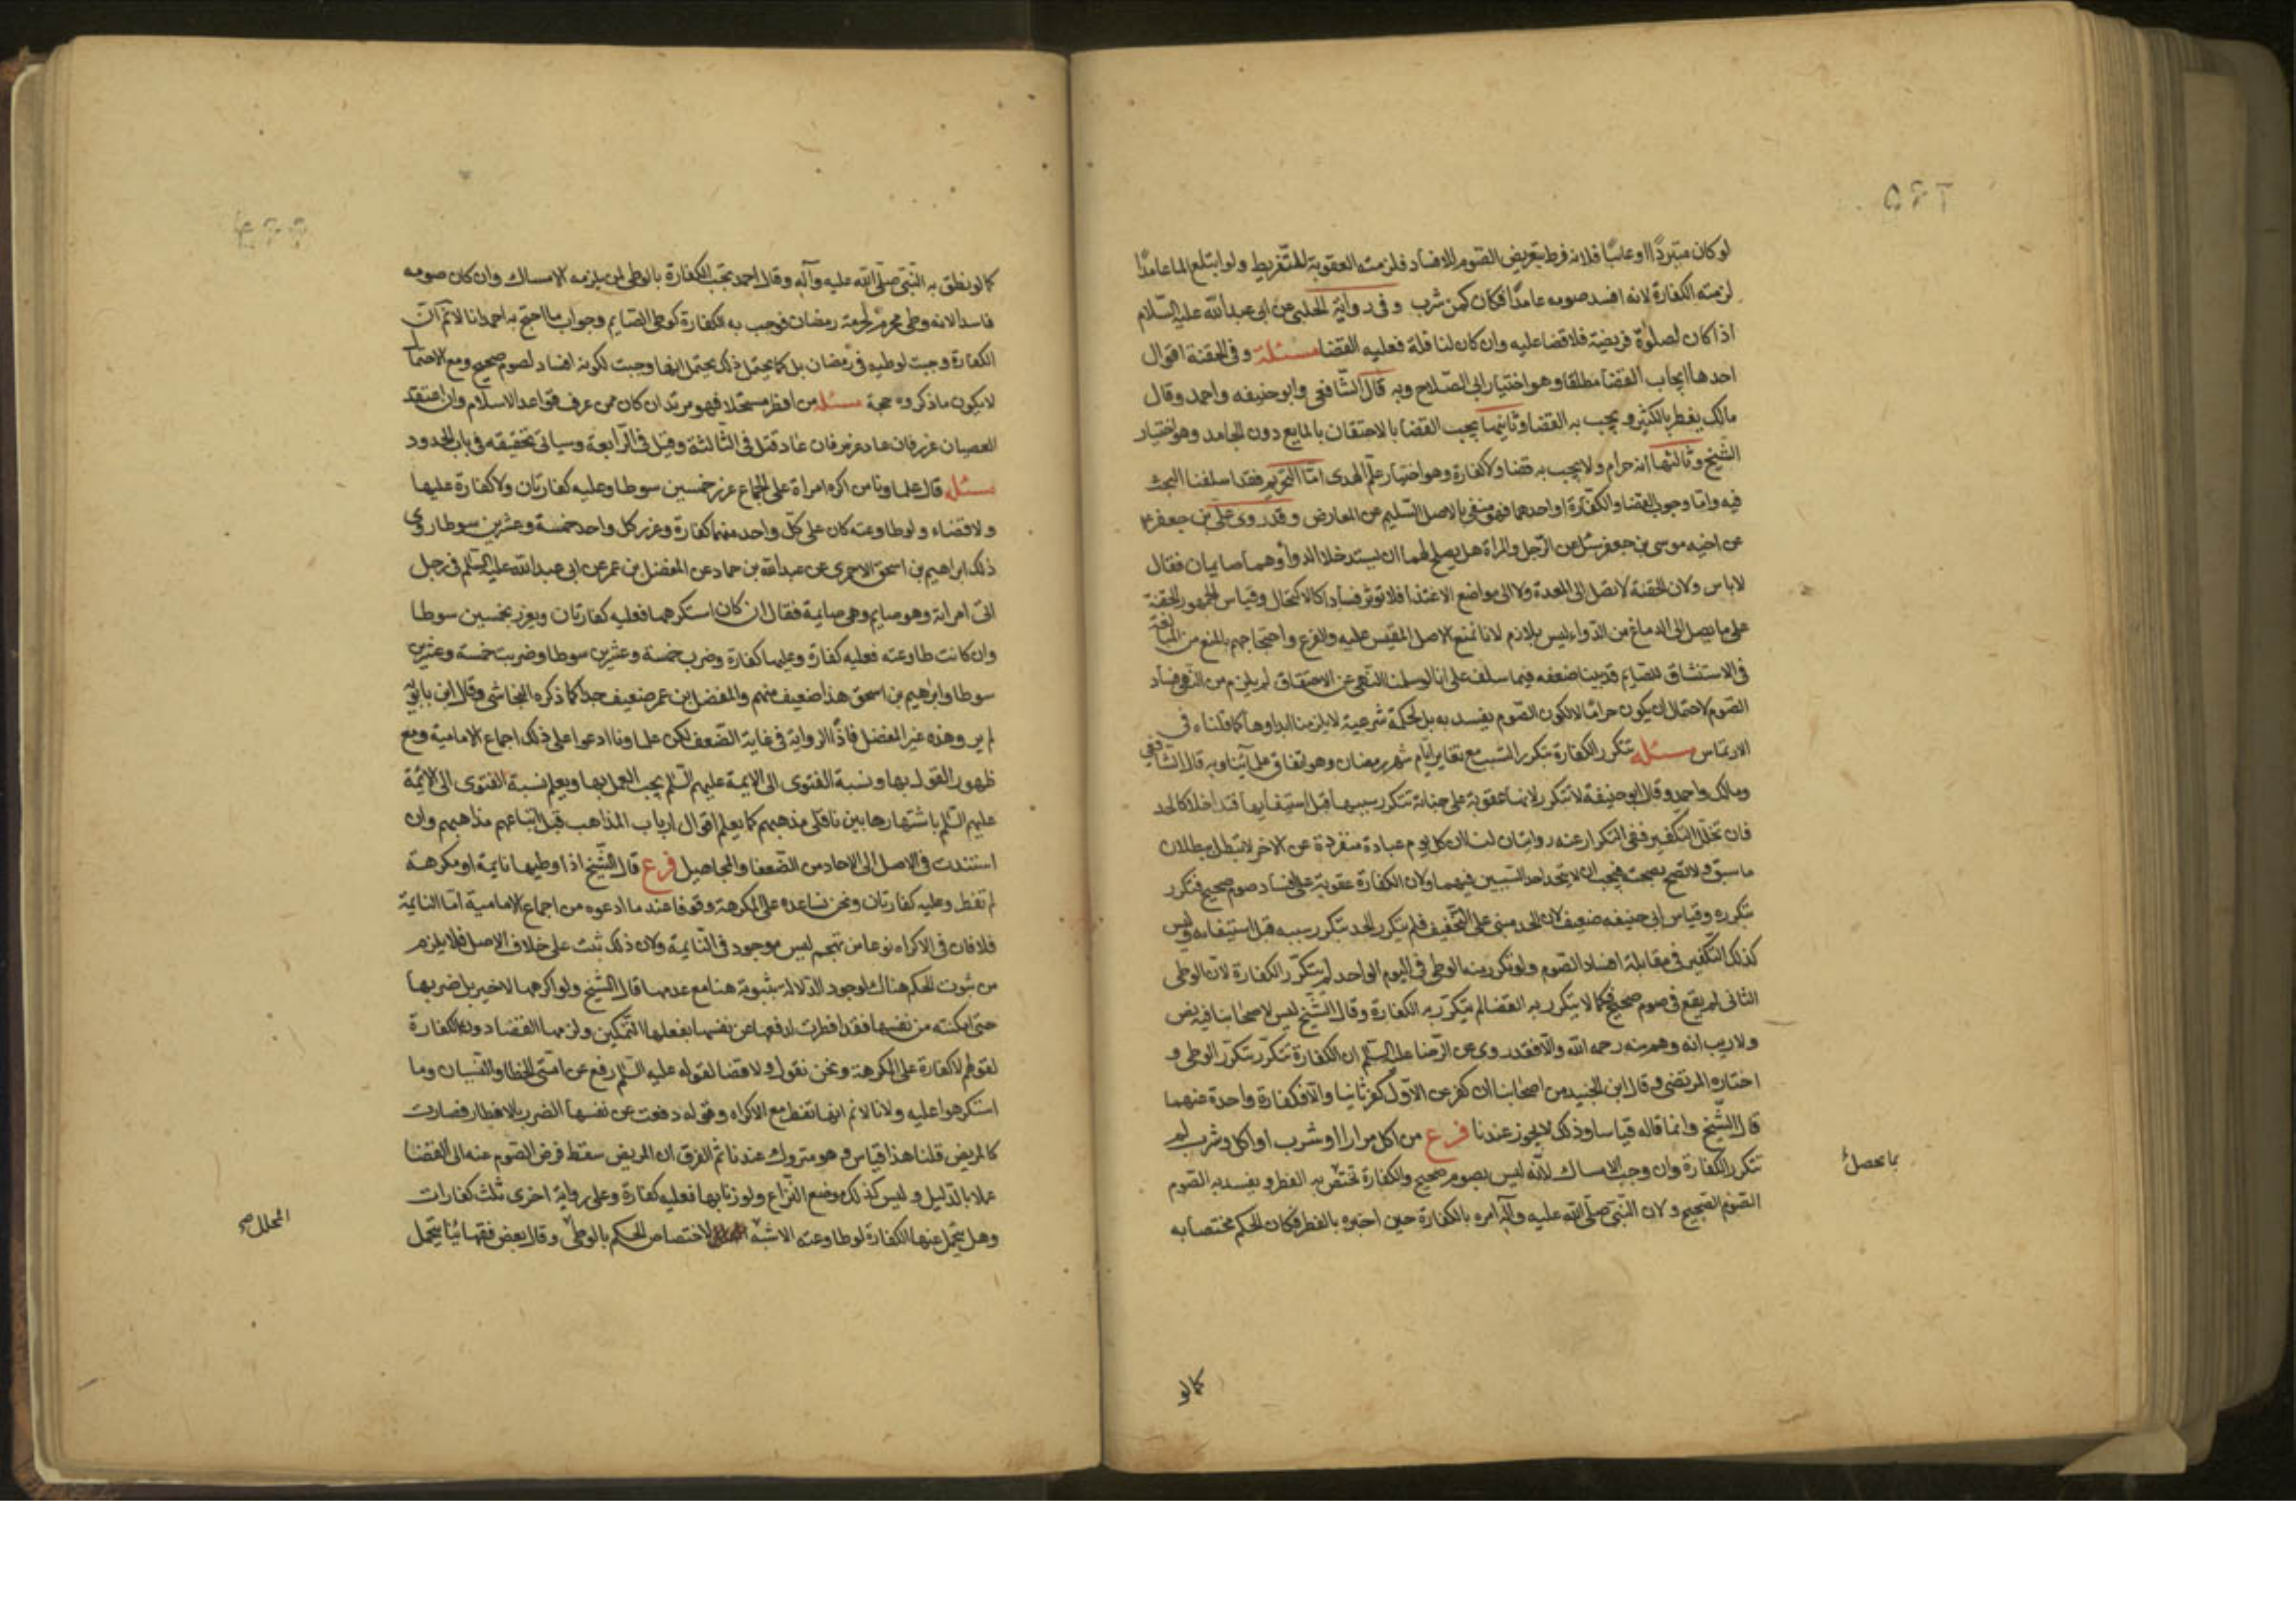 لو كان متبردًا او عابثًا فلانه فرط بتعريض الصوم للافساد فلزمته العقوبة للتفريط ولو ابتلع الما عامدًا
لزمته الكفارة لانه افسد صومه عامدًا فكان كمن شرب وفى رواية الحلبى عن ابى عبد الله عليه السلام
اذا كان لصلوة فريضة فلا قضا عليه وان كان لنافلة فعليه القضا مسئلة وفى الحقنة اقوال
احدها ايجاب القضا مطلقا وهو اختيار ابى الصلاح وبه قال الشافعى وابو حنيفه واحمد وقال
مالك يفطر بالكثير ويجب به القضا وثانيها يجب القضا بالاحتقان بالمايع دون الجامد وهو اختيار
الشيخ وثالثها انه حرام ولا يجب به قضا ولا كفارة وهو اختيار علم الهدى امّا التحريم فقد اسلفنا البحث
فيه وامّا وجوب القضا والكفارة او احدهما فهو منفى بالاصل السليم عن المعارض وقد روى على بن جعفر
عن اخيه موسى بن جعفر سئل عن الرجل والمراة هل يصلح لهما ان يستدخلا الدوا وهما صايمان فقال
لا باس ولان الحقنة لا تصل الى المعدة ولا الى مواضع الاغتذا فلا توثر فسادا كالاكتحال وقياس الجمهور الحقنة
على ما يصل الى الدماغ من الدواء ليس بلازم لانا نمنع الاصل المقيس عليه والفرع واحتجاجهم بالمنع من المبالغة
فى الاستنشاق للصايم قد بينا ضعفه فيما سلف على انا لو سلمنا النهى عن الاحتقان لم يلزم من النهى فساد
الصوم لاحتمال ان يكون حرامًا لا لكون الصوم يفسد به بل لحكمة شرعية لا يلزمنا ابداوها كما قلناه فى
الارتماس مسئلة تتكرر الكفارة بتكرر السبب مع تغاير ايام شهر رمضان وهو اتفاق علمائنا وبه قال الشافعى
ومالك واحمد وقال ابو حنيفة لا تتكرر لانها عقوبة على جناية تتكرر سببها قبل استيفايها فتداخلا كالحد
فان تخلل التكفير ففى التكرار عنه روايتان لنا ان كل يوم عبادة منفردة عن الاخر لا تبطل ببطلان
ما سبق ولا تصح بصحته فيجب ان لا يتحد احد السببين فيهما ولان الكفارة عقوبة على افساد صوم صحيح فتكرر
بتكرره وقياس ابى حنيفه ضعيف لان الحد مبنى على التخفيف فلم يتكرر الحد بتكرر سببه قبل استيفائه وليس
كذلك التكفير فى مقابلة افساد الصوم ولو تكرر منه الوطى فى اليوم الواحد لم يتكرر الكفارة لان الوطى
الثانى لم يقع فى صوم صحيح فكما لا يتكرر به القضا لم يتكرر به الكفارة وقال الشيخ ليس لاصحابنا فيه نص
ولا ريب انه وهم منه رحمه الله والا فقد روى عن الرضا عليه السلم ان الكفارة تتكرر بتكرر الوطى و
اختاره المرتضى وقال ابن الجنيد من اصحابنا ان كفر عن الاول كفر ثانيا والا فكفارة واحدة عنهما
قال الشيخ وانما قاله قياسا وذلك لا يجوز عندنا فرع من اكل مرارا او شرب او اكل وشرب لم
تتكرر الكفارة وان وجب الامساك لانه ليس بصوم صحيح والكفارة تختص به الفطر ويفسد به الصوم
الصوم الصحيح ولان النبى صلى الله عليه وآله امره بالكفارة حين اخبره بالفطر فكان الحكم مختصا به
بما يحصل
كما لو
كما لو نطق به النبى صلى الله عليه وآله وقال احمد تجب الكفارة بالوطى لمن يلزمه الامساك وان كان صومه
فاسدا لانه وطى محرم لحرمة رمضان فوجب به الكفارة كوطى الصايم وجواب ما احتج به احمد انا لا نم ان
الكفارة وجبت لوطيه فى رمضان بل كما يحتمل ذلك يحتمل انها وجبت لكونه افساد لصوم صحيح ومع الاحتمال
لا يكون ما ذكروه حجة مسئلة من افطر مستحلا فهو مرتد ان كان ممن عرف قواعد الاسلام وان اعتقد
العصيان عزر فان عاد عزر فان عاد قتل فى الثالثة وقيل فى الرابعة وسياتى تحقيقه فى باب الحدود
مسئلة قال علماونا من اكره امراة على الجماع عزر خمسين سوطا وعليه كفارتان ولا كفارة عليها
ولا قضاء ولو طاوعته كان على كل واحد منهما كفارة وعزر كل واحد خمسة وعشرين سوطا روى
ذلك ابراهيم بن اسحق الاحمرى عن عبد الله بن حماد عن المفضل بن عمر عن ابى عبد الله عليه السلم فى رجل
اتى امراته وهو صايم وهى صايمة فقال ان كان استكرهها فعليه كفارتان ويعزر بخمسين سوطا
وان كانت طاوعته فعليه كفارة وعليها كفارة وضرب خمسة وعشرين سوطا وضربت خمسة وعشرين
سوطا وابراهيم بن اسحق هذا ضعيف متهم والمفضل بن عمر ضعيف جدا كما ذكره النجاشى وقال ابن بابويه
لم يرو هذه غير المفضل فاذًا الرواية فى غاية الضعف لكن علماونا ادعوا على ذلك اجماع الامامية ومع
ظهور القول بها ونسبة الفتوى الى الايمة عليهم السلم يجب العمل بها ويعلم نسبة الفتوى الى الائمة
عليهم السلم باشتهارها بين ناقلى مذهبهم كما يعلم اقوال ارباب المذاهب قبل اتباعهم مذاهبهم وان
استندت فى الاصل الى الاحاد من الضعفا والمجاهيل فرع قال الشيخ اذا وطيها نايمة او مكرهة
لم تفطر وعليه كفارتان ونحن نساعده على المكرهة وقوفا عند ما ادعوه من اجماع الامامية اما النايمة
فلا فان فى الاكراه نوعا من تهجم ليس موجود فى النايمة ولان ذلك ثبت على خلاف الاصل فلا يلزم
من ثبوت الحكم هناك لوجود الدلالة ثبوته هنا مع عدمها قال الشيخ ولو اكرهها لا خير بل ضربها
حتى امكنته من نفسها فقد افطرت لدفعها عن نفسها بفعلها التمكين ولزمها القضا دون الكفارة
لقولهم لا كفارة على المكرهة ونحن نقول ولا قضا لقوله عليه السلم رفع عن امتى الخطا والنسيان وما
استكرهوا عليه ولانا لا نم انها تفطر مع الاكراه وقوله دفعت عن نفسها الضرر بالافطار فصارت
كالمريض قلنا هذا قياس وهو متروك عندنا ثم الفرق ان المريض سقط فرض الصوم عنه الى القضا
عملا بالدليل وليس كذلك موضع النزاع ولو زنا بها فعليه كفارة وعلى رواية اخرى ثلث كفارات
وهل يتحمل عنها الكفارة لو طاوعته الاشبه لاختصاص الحكم بالوطى وقال بعض فقهائنا يتحمل